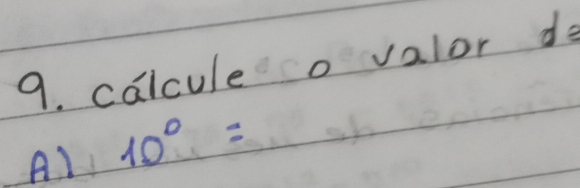 9. cálcule o valor de
A) 10⁰ =